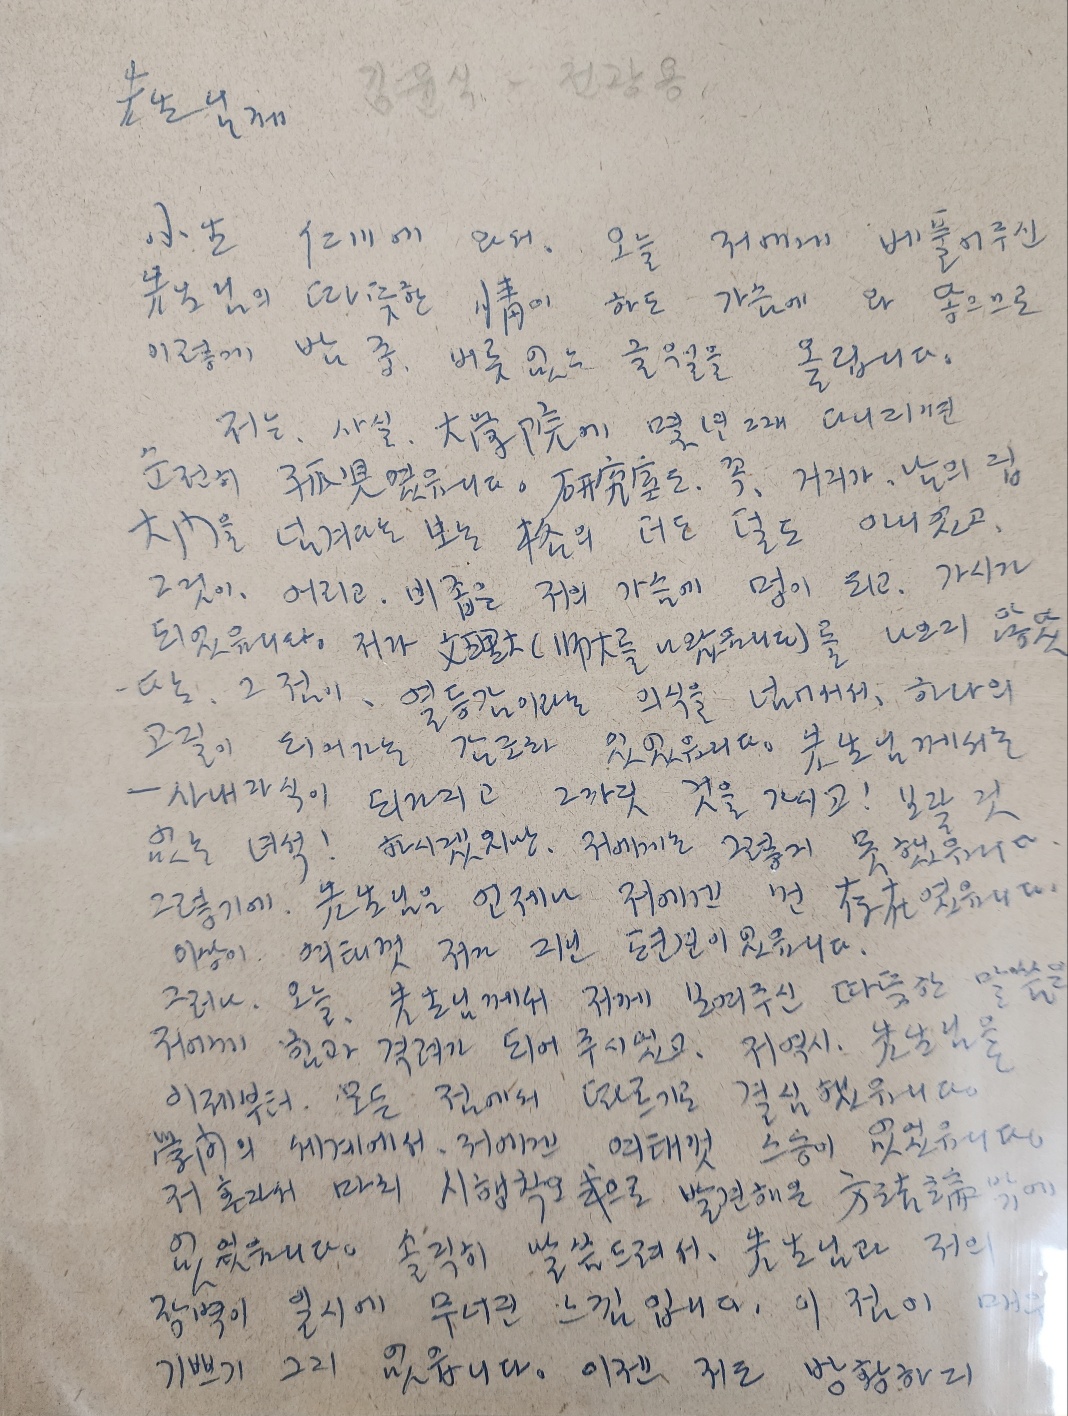 김윤식 - 전광용
先生님께
小生 仁川에 와서, 오늘 저에게 베풀어주신
先生님의 따뜻한 情이 하도 가슴에 와 좋으므로
이렇게 밤 중, 버릇없는 글월을 올립니다.
저는, 사실, 大學院에 몇 년그래 다니라면
순전히 孤児였읍니다. 硏究室도, 꼭, 거리가, 남의 집
大門을 넘겨다 보는 格의 더도 덜도 아니겠고,
그것이, 어리고, 비좁은 저의 가슴에 멍이 되고, 가시가
되었읍니다. 저가 文理大(師大를 나왔읍니다)를 나오지 않았
다는, 그 점이, 열등감이라는 의식을 넘어서서, 하나의
고질이 되어가는 감조차 있었읍니다. 先生님께서는
— 사내자식이 되가지고 그까짓 것을 가지고! 보잘 것
없는 녀석! 하시겠지만, 저에게는 그렇게 못했읍니다.
그렇기에, 先生님은 언제나 저에겐 먼 存在였읍니다.
이상이, 여태껏 저가 지닌 도련이었읍니다.
그러나, 오늘, 先生님께서 저께 보여주신 따뜻한 말씀은
저에게 힘과 격려가 되어 주시었고, 저역시, 先生님을
이제부터, 모든 점에서 따르기로 결심했읍니다.
學問의 세계에서, 저에겐 여태껏 스승이 없었읍니다.
저 혼자서 마치 시행착오式으로 발견해온 方法論 밖에
없었읍니다. 솔직히 말씀드려서, 先生님과 저의
장벽이 일시에 무너진 느낌입니다. 이 점이 매우
기쁘기 그지 없읍니다. 이젠 저도 방황하지